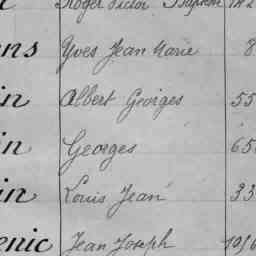 Roger Victor Baptiste
ens Yves Jean Marie 8
in Albert Georges 55
in Georges 65
in Louis Jean 33
enic Jean Joseph